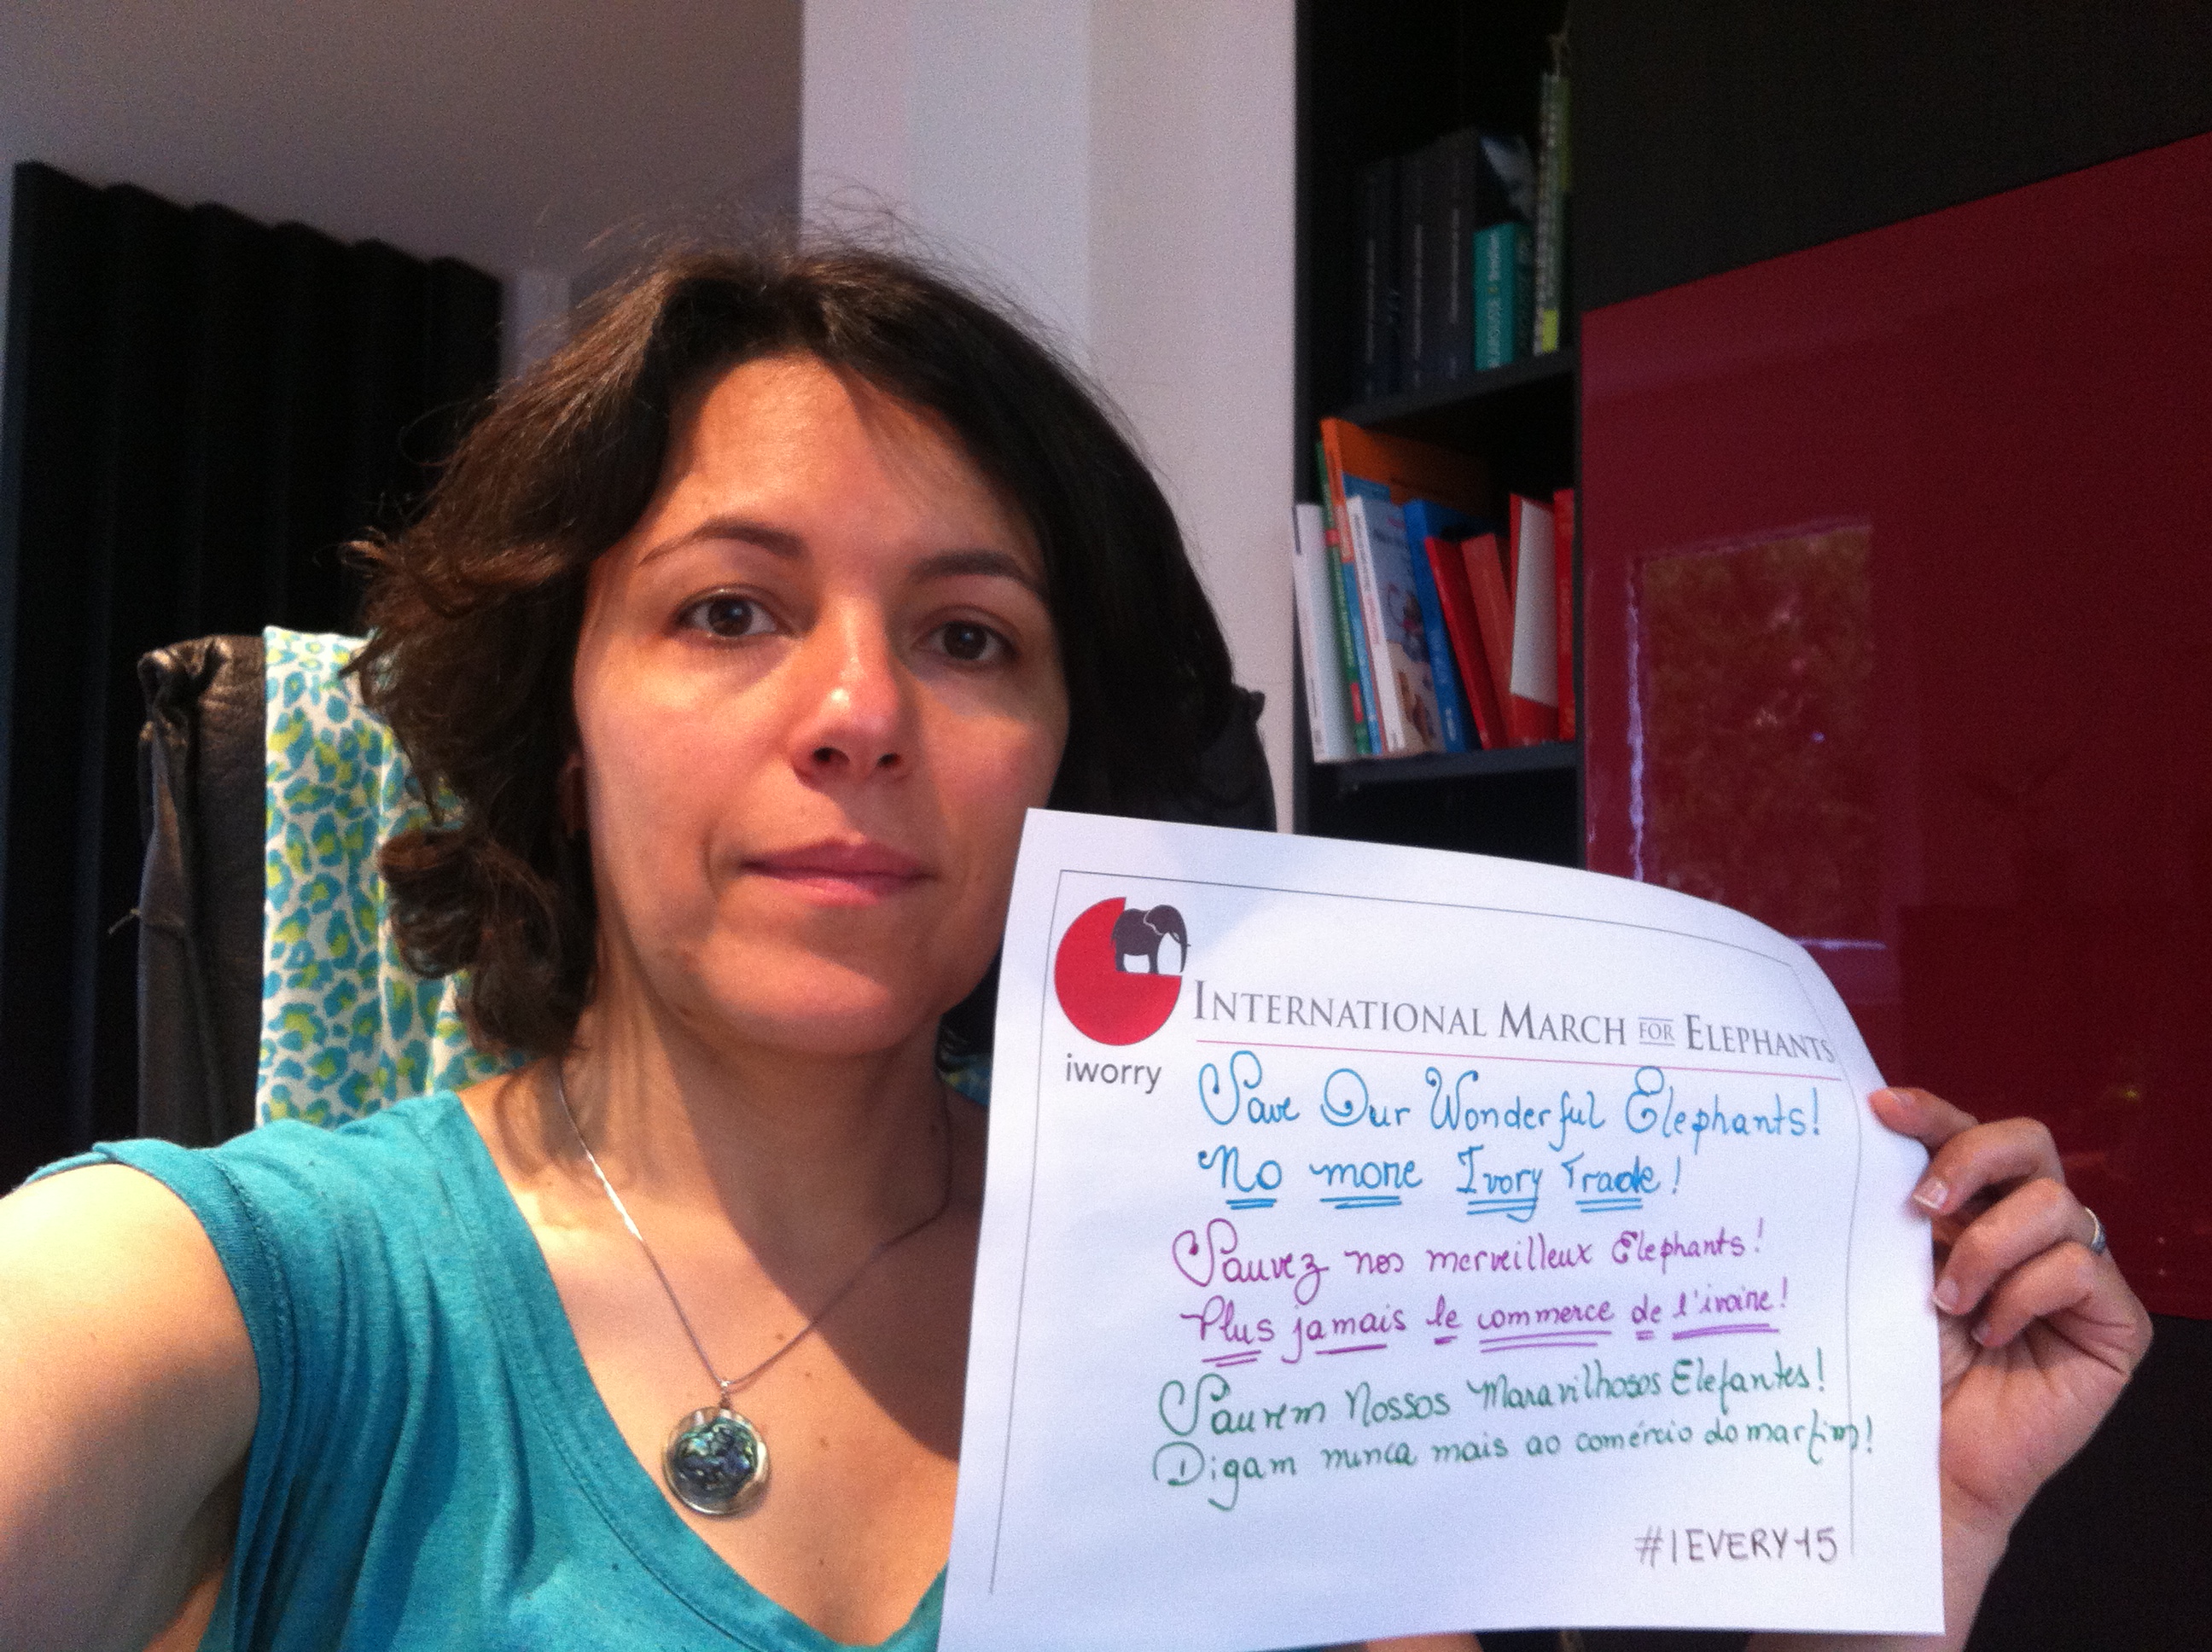 INTERNATIONAL MARCH FOR ELEPHANTS
iworry
Save Our Wonderful Elephants!
No more Ivory Trade!
Sauvez nos merveilleux Elephants!
Plus jamais le commerce de l'ivoire!
Sauvem Nossos Maravilhosos Elefantes!
Digam nunca mais ao comércio do marfim!
#1EVERY15